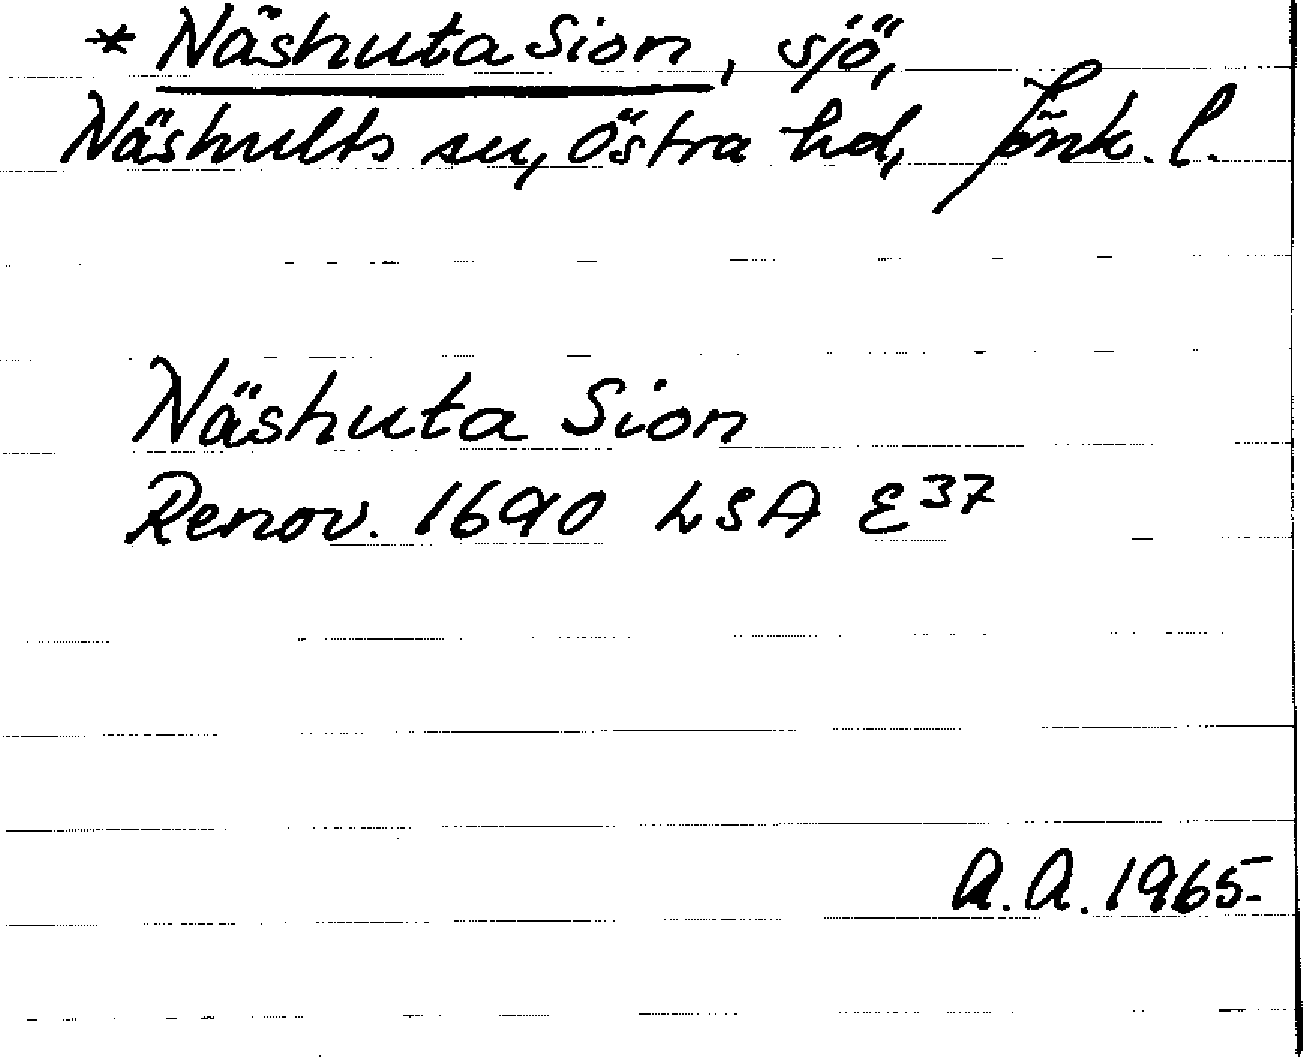 * Näshuta Sion, sjö,
Näshults sn, Östra hd, Jönk. l.
Näshuta Sion
Renov. 1690 LSA E37
A.A. 1965